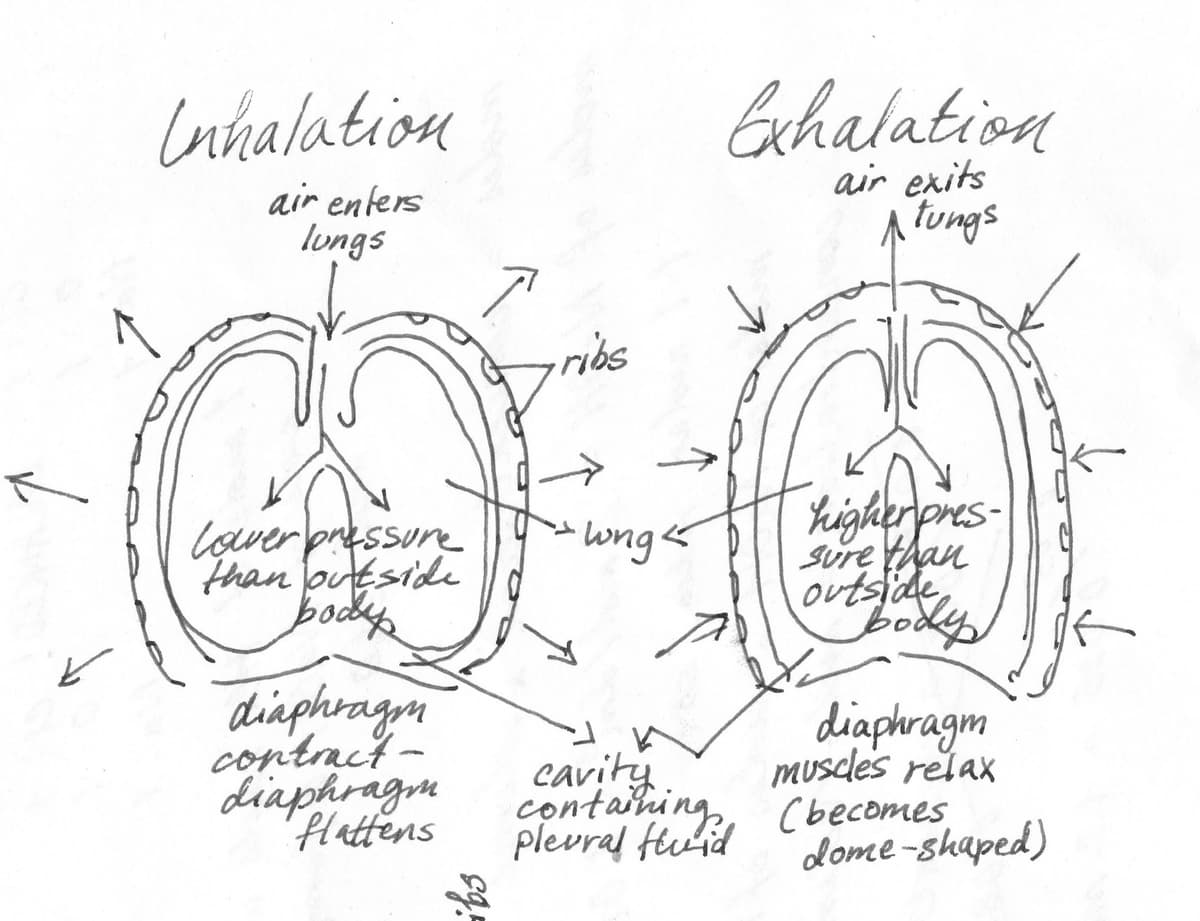 Inhalation
air enters
lungs
ribs
lung
lower pressure
than outside
body
diaphragm
contract -
diaphragm
flattens
cavity
containing
pleural fluid
Exhalation
air exits
lungs
higher pres-
sure than
outside
body
diaphragm
muscles relax
(becomes
dome-shaped)